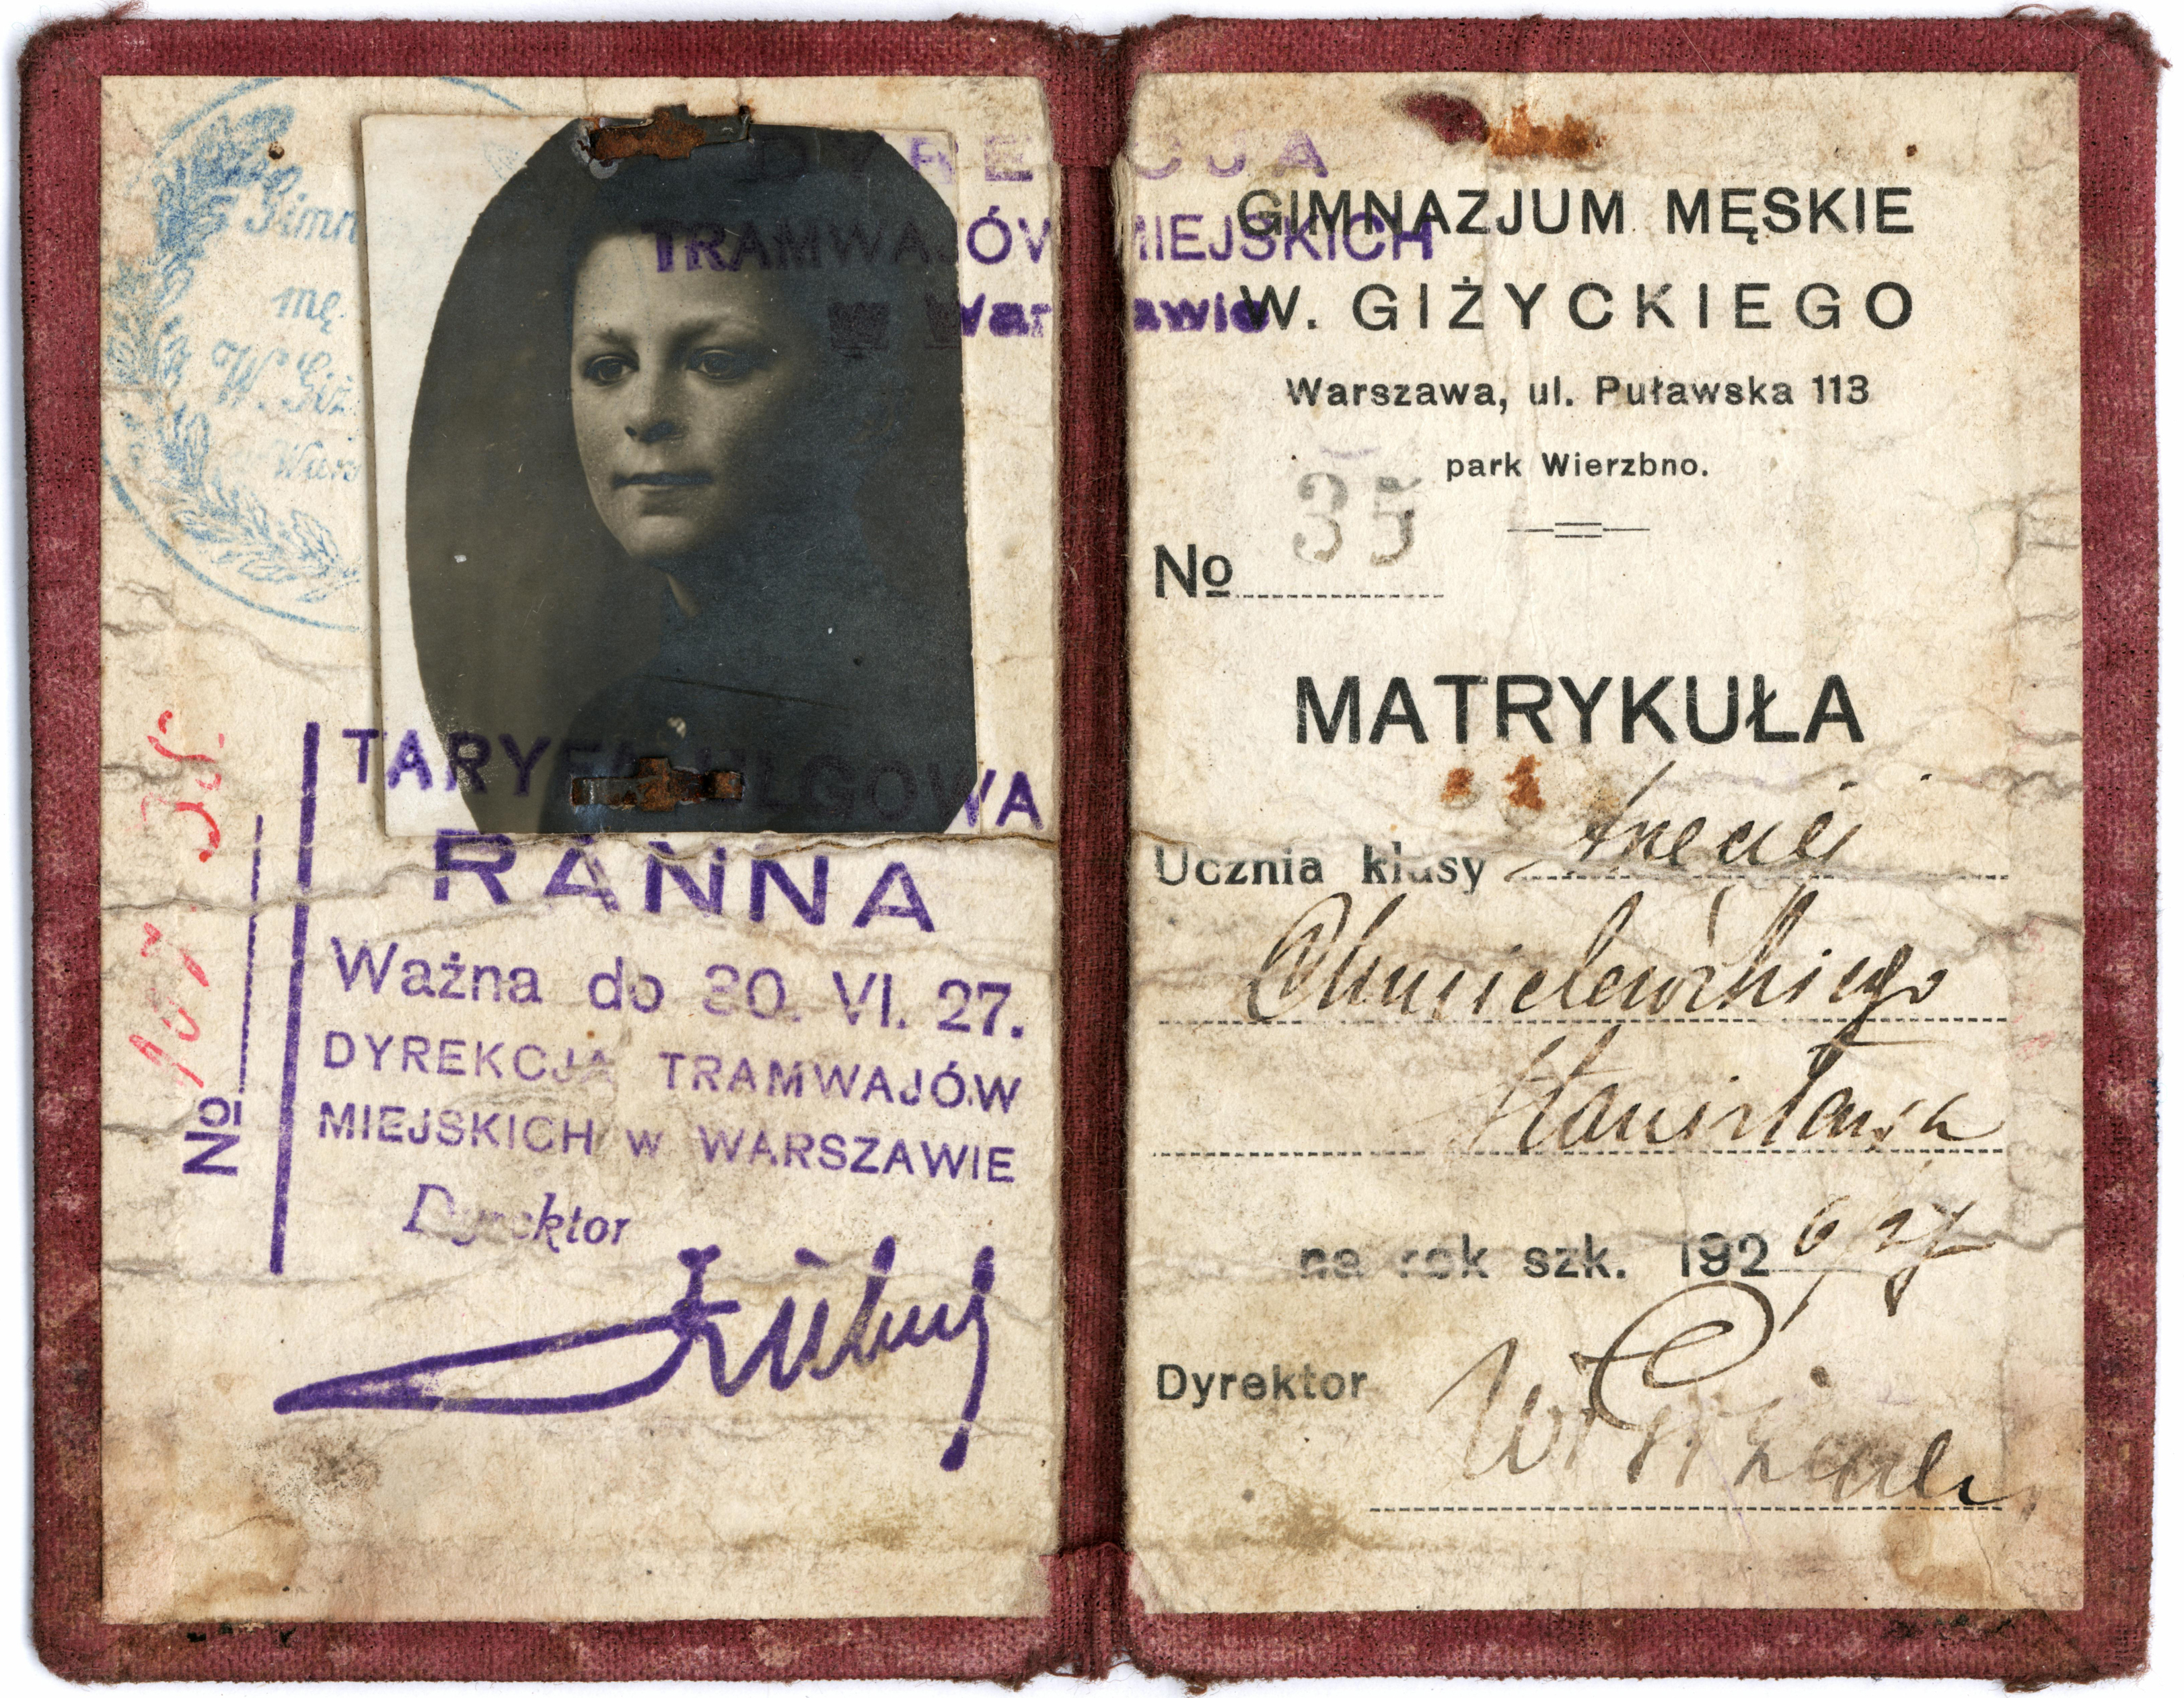 Gimn
mę.
W. Giż
Wars
DYRE CJA
TRAMWAJÓW MIEJSKICH
w Warszawie
TARYFA ULGOWA
RANNA
Ważna do 30. VI. 27.
DYREKCJA TRAMWAJÓW
MIEJSKICH w WARSZAWIE
Dyrektor
No
GIMNAZJUM MĘSKIE
W. GIŻYCKIEGO
Warszawa, ul. Puławska 113
park Wierzbno.
No 35
MATRYKUŁA
Ucznia klasy trzeciej
Chmielewskiego
Stanisława
na rok szk. 1926/27
Dyrektor